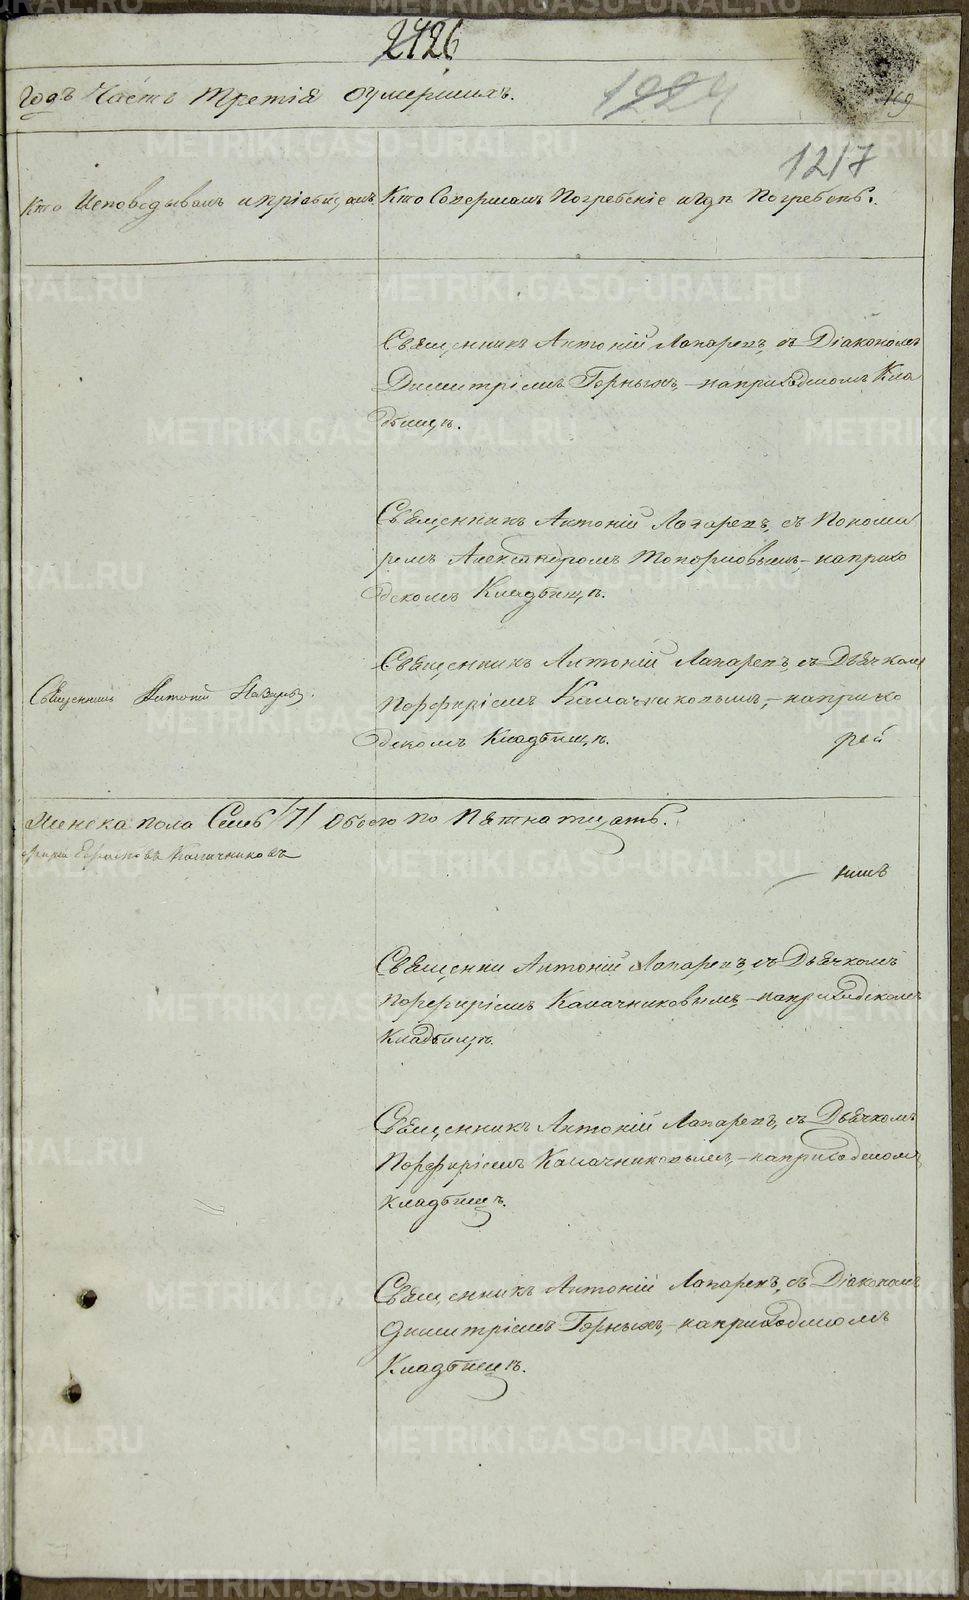 2426
Годъ Часть Третiя оумершихъ.
1224
169
1217
Кто Исповѣдывалъ и прiобщалъ
Кто Совершалъ Погребенiе и гдѣ Погребенъ.
Священникъ Антонiй Лапаревъ, съ Дiакономъ
Димитрiемъ Горныхъ, - на приходскомъ Кла
дбищѣ.
Священникъ Антонiй Лапаревъ, съ Понома
ремъ Александромъ Топорковымъ, - на прихо
дскомъ Кладбищѣ.
Священникъ Антонiй Лапаревъ, съ Дьячкомъ
Священникъ Антонiй
Порфирiемъ Калачниковымъ, - на прихо
дскомъ Кладбищѣ. рей
Женска пола Семь /7/ Обоего по Пятнатцать.
Калачниковъ
нимъ
Священни Антонiй Лапаревъ, съ Дьячкомъ
Порфирiемъ Калачниковымъ, - на приходскомъ
Кладбищѣ.
Священникъ Антонiй Лапаревъ, съ Дьячкомъ
Порфирiемъ Калачниковымъ, - на приходскомъ
кладбищѣ.
Священникъ Антонiй Лапаревъ, съ Дiакономъ
Димитрiемъ Горныхъ, - на приходскомъ
Кладбищѣ.
METRIKI.GASO-URAL.RU